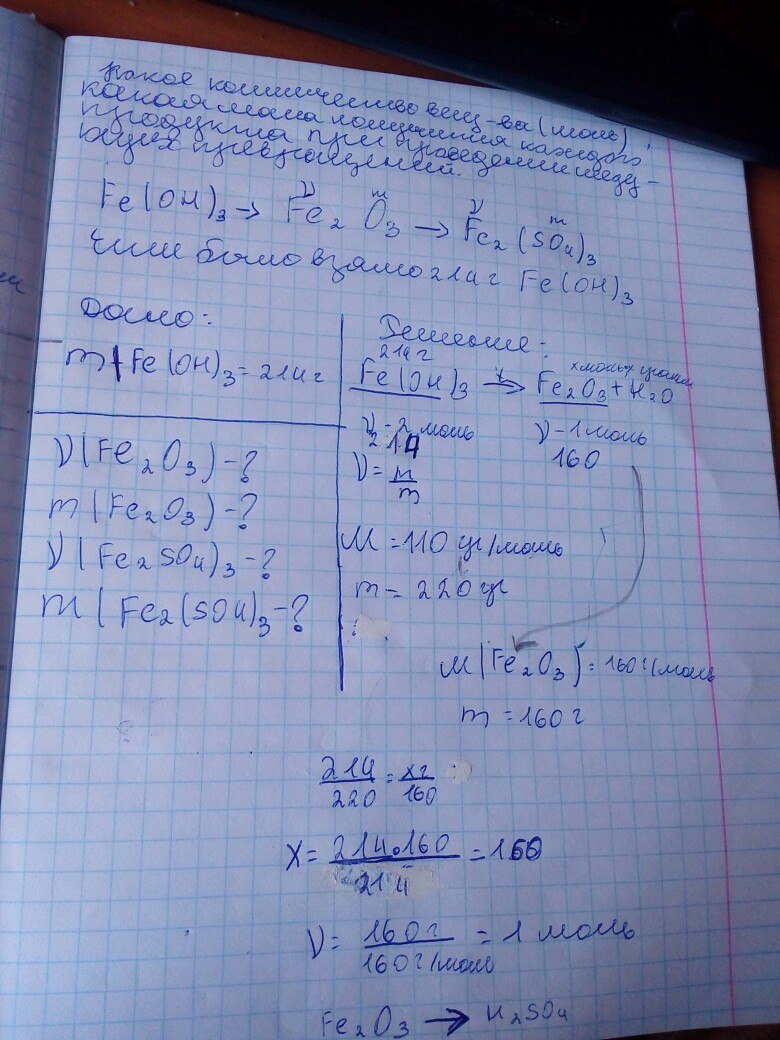 Какое количество вещ-ва (моль),
какая масса получится каждого
продукта при проведении следу-
ющих превращений.
ν m ν m
Fe(OH)3 → Fe2 O3 → Fe2 (SO4)3
Если было взято 214 г Fe(OH)3
Дано:
m(Fe(OH)3 = 214 г
ν(Fe2O3) - ?
m(Fe2O3) - ?
ν(Fe2SO4)3 - ?
m(Fe2(SO4)3 - ?
Решение:
214 г
Fe(OH)3 →t Fe2O3 + H2O
ν - 2 моль ν - 1 моль
214 160
ν = M/m
M = 110 гр/моль
m = 220 гр
M(Fe2O3) = 160 г/моль
m = 160 г
214/220 = xг/160
X = 214·160/214 = 160
ν = 160 г/160 г/моль = 1 моль
Fe2O3 → H2SO4